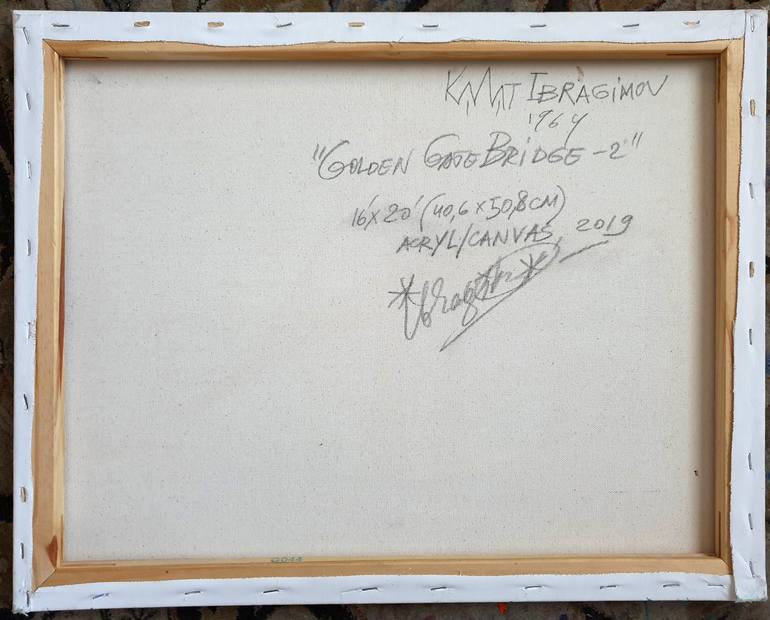 IBRAGIMOV
1964
"GOLDEN GATE BRIDGE -2"
16'X20' (40,6X50,8CM)
ACRYL/CANVAS, 2019